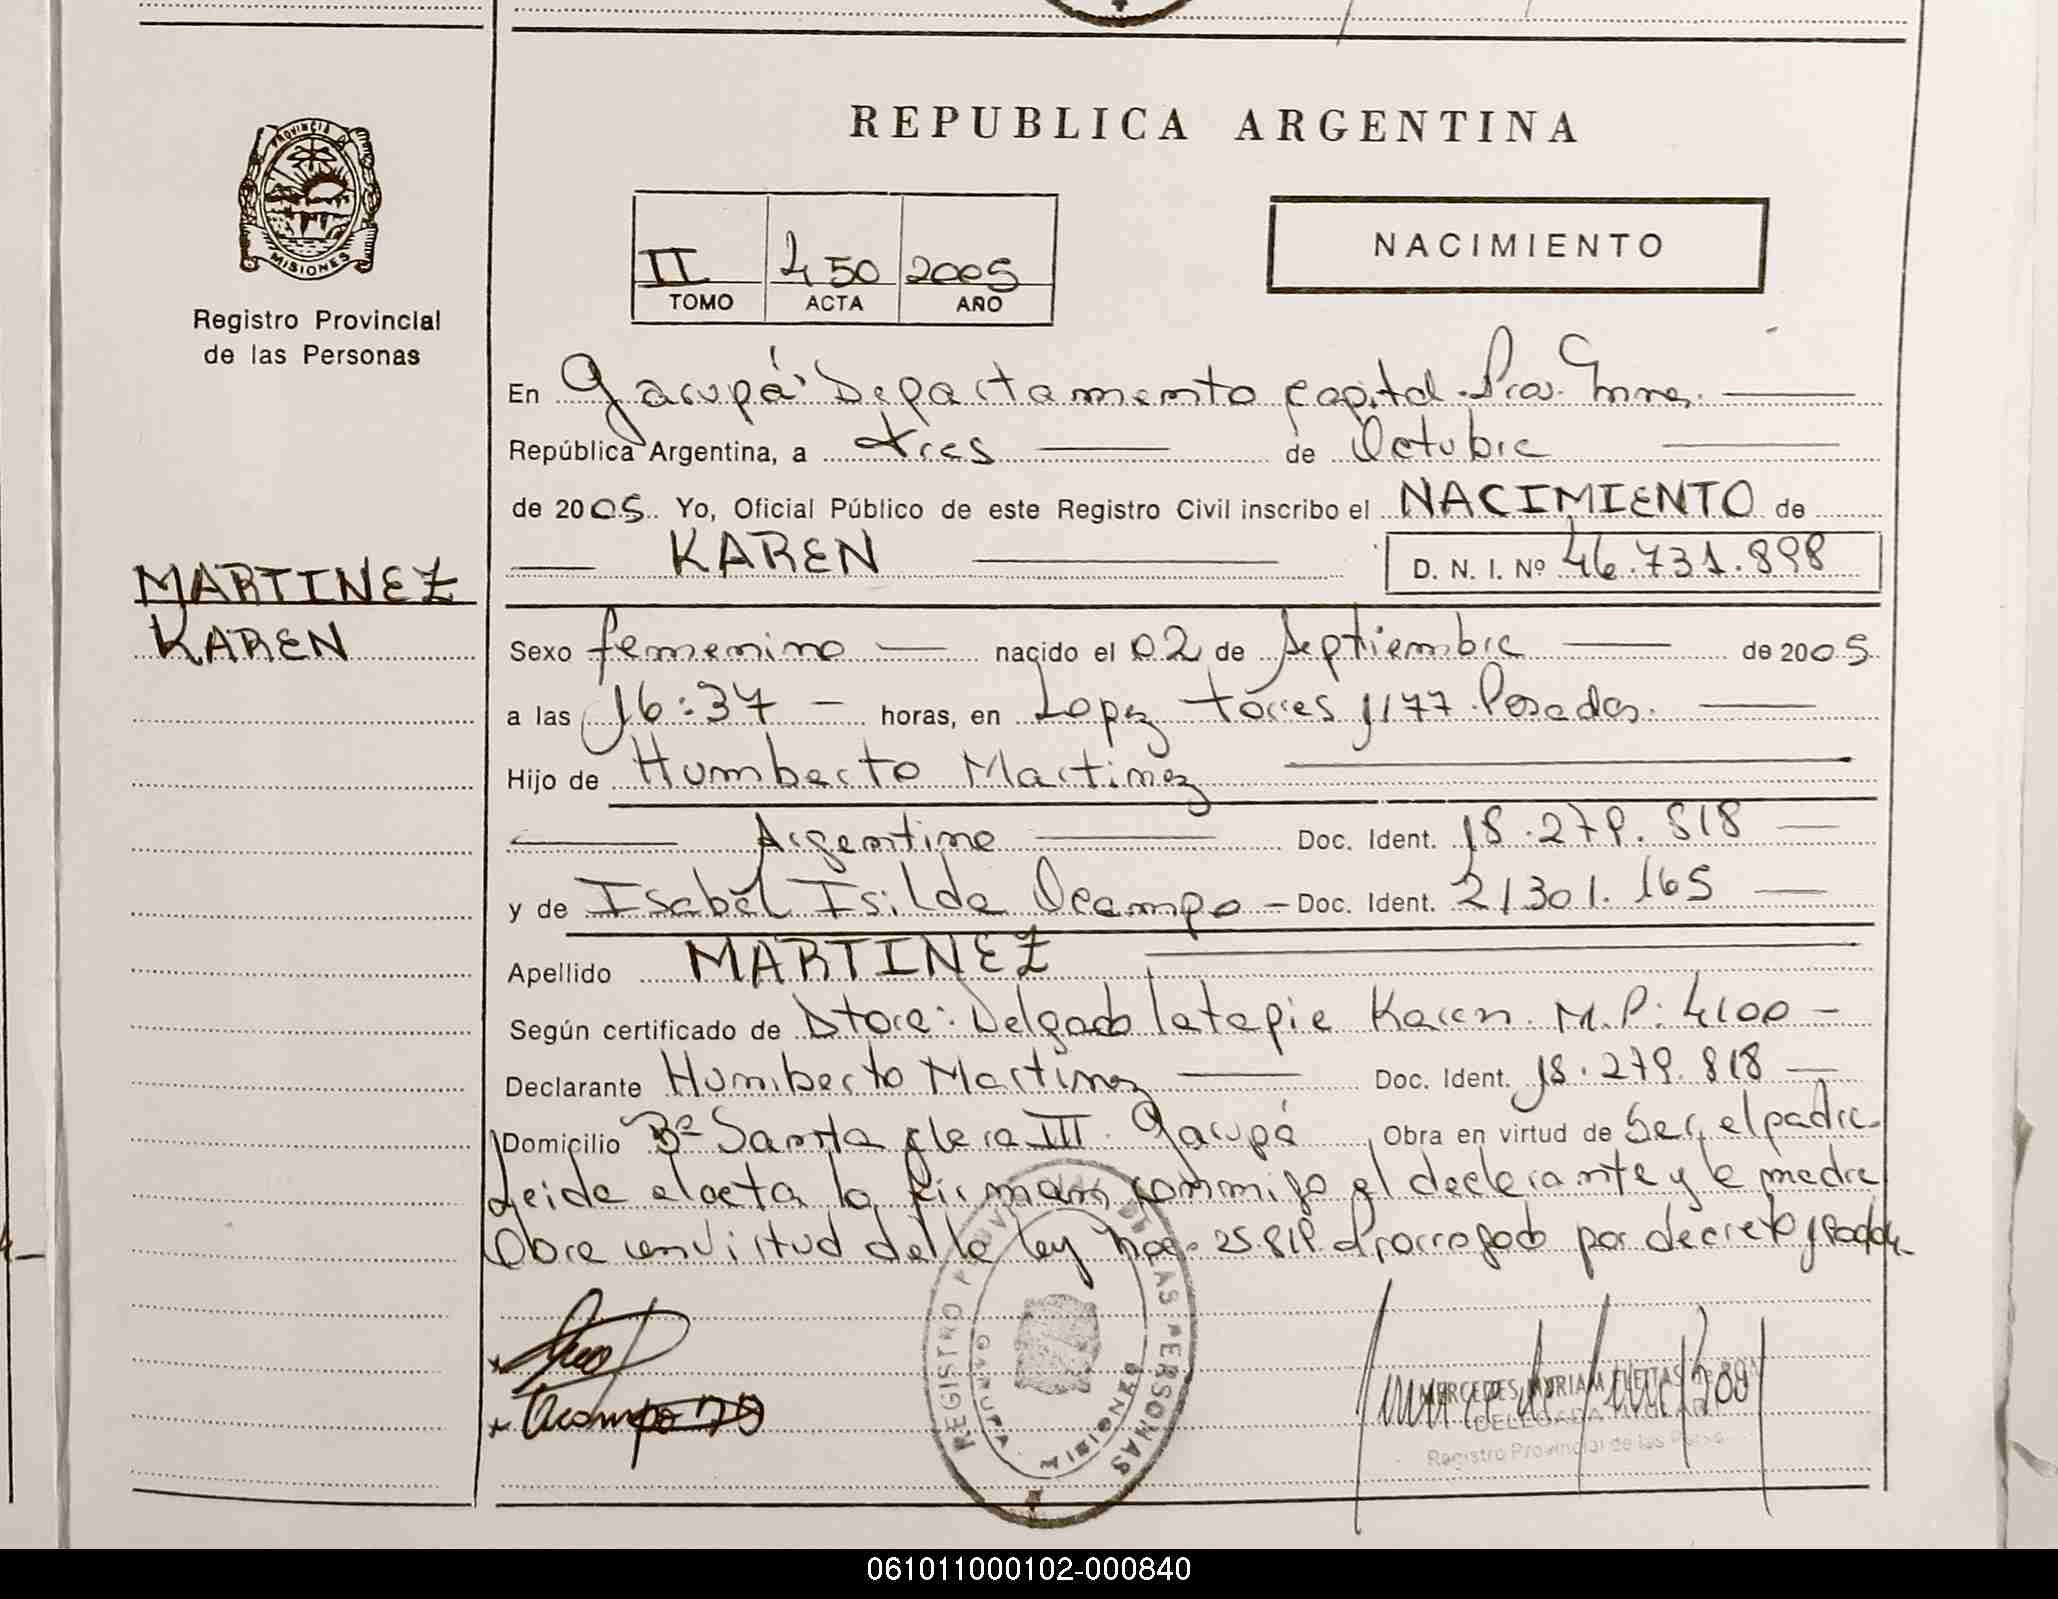 REPUBLICA ARGENTINA
PROVINCIA DE
MISIONES
Registro Provincial
de las Personas
II 450 2005
TOMO ACTA AÑO
NACIMIENTO
En Garupá Departamento Capital Prov. Mnes.
República Argentina, a tres de Octubre
de 2005. Yo, Oficial Público de este Registro Civil inscribo el NACIMIENTO de
KAREN D. N. I. Nº 46.731.898
MARTINEZ
KAREN
Sexo femenino nacido el 02 de Septiembre de 2005
a las 16:37 horas, en Lopez torres 1177 Posadas.
Hijo de Humberto Martinez
Argentino Doc. Ident. 18.279.818
y de Isabel Isilda Ocampo Doc. Ident. 21301.165
Apellido MARTINEZ
Según certificado de Dtora: Delgado Latapie Karen. M.P: 4100
Declarante Humberto Martinez Doc. Ident. 18.279.818
Domicilio Bº Santa Clara III. Garupá Obra en virtud de Ser el padre
Leida el acta la firman conmigo el declarante y la madre
Obra en virtud de la ley nro. 25.819 Prorrogado por decreto
REGISTRO PROVINCIAL DE LAS PERSONAS
GARUPA MISIONES
Ocampo
MERCEDES MYRIAM
Registro Provincial de las Perso
061011000102-000840